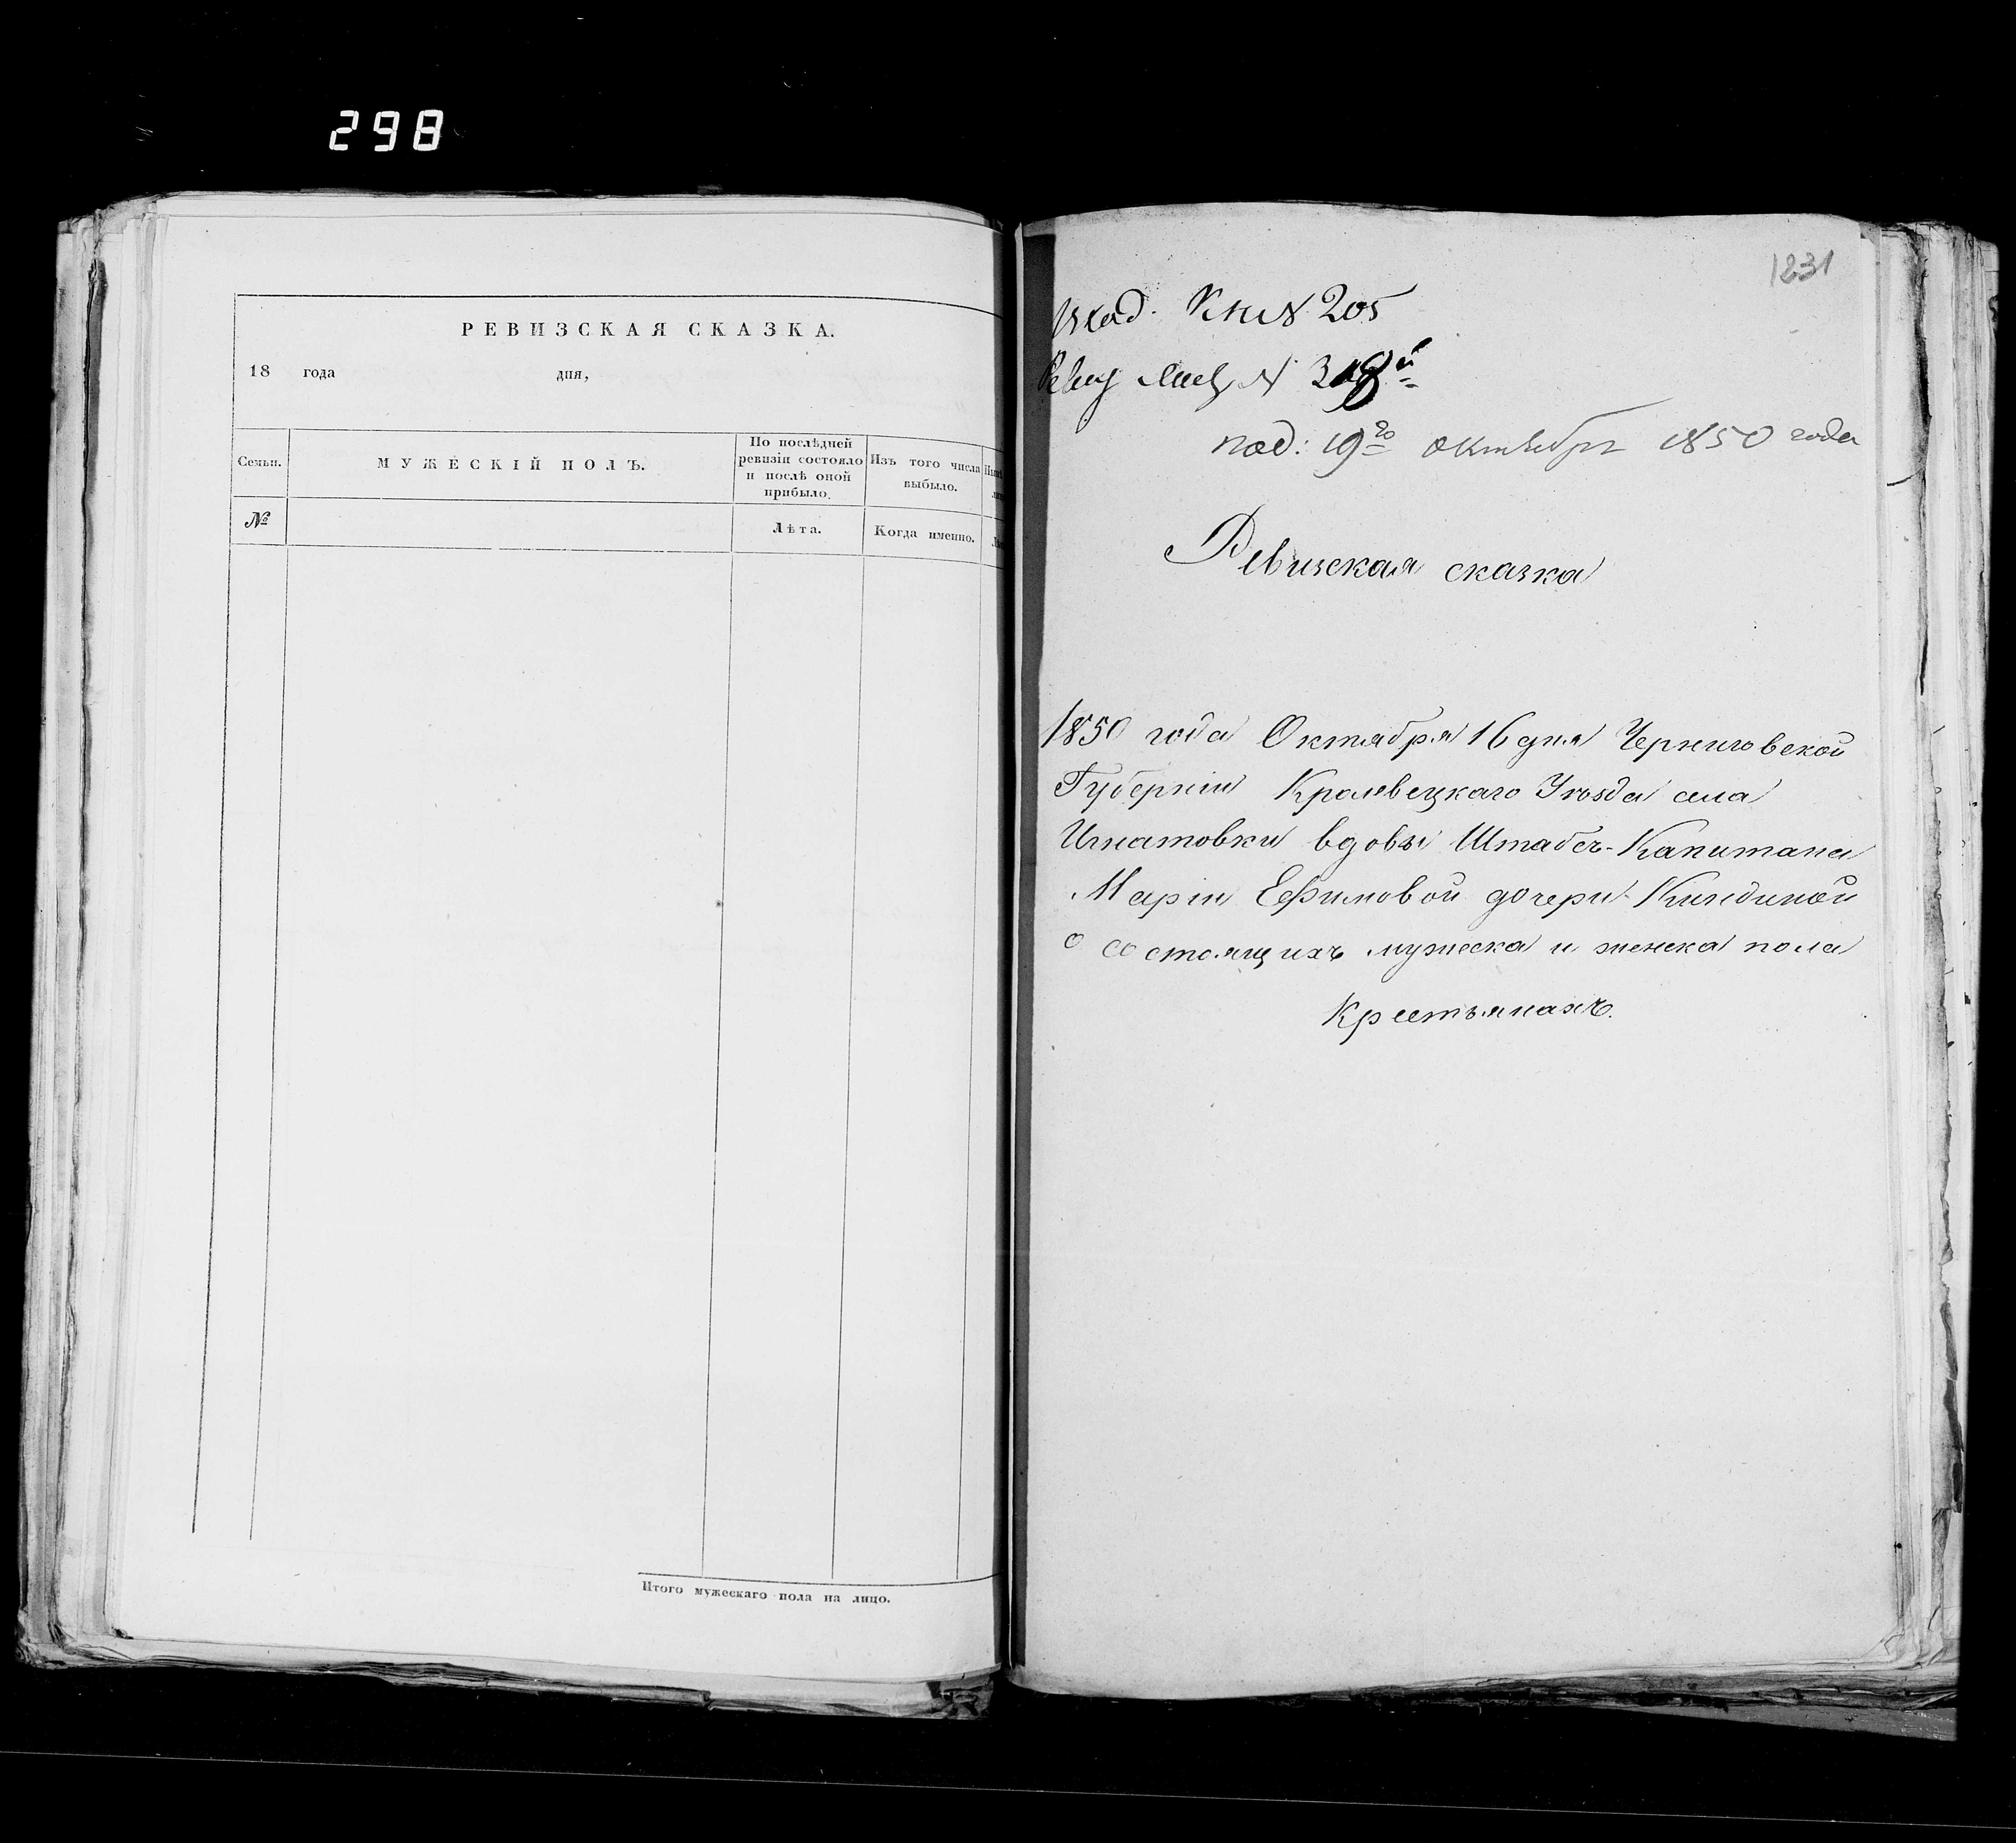 298
РЕВИЗСКАЯ СКАЗКА.
18 года дня,
Семьи.
МУЖЕСКІЙ ПОЛЪ.
По послѣдней
ревизіи состояло
и послѣ оной
прибыло.
Изъ того числа
выбыло.
№
Лѣта.
Когда именно.
Итого мужескаго пола на лицо.
1231
Вход. Кн № 205
№
под: 19го октября 1850 года
Ревизская сказка
1850 года Октября 16 дня Черниговской
Губерніи Кролевецкаго Уѣзда села
Игнатовки вдовы Штабсъ-Капитана
Маріи Ефимовой дочери Киндиной
о состоящихъ мужеска и женска пола
Крестьянахъ.